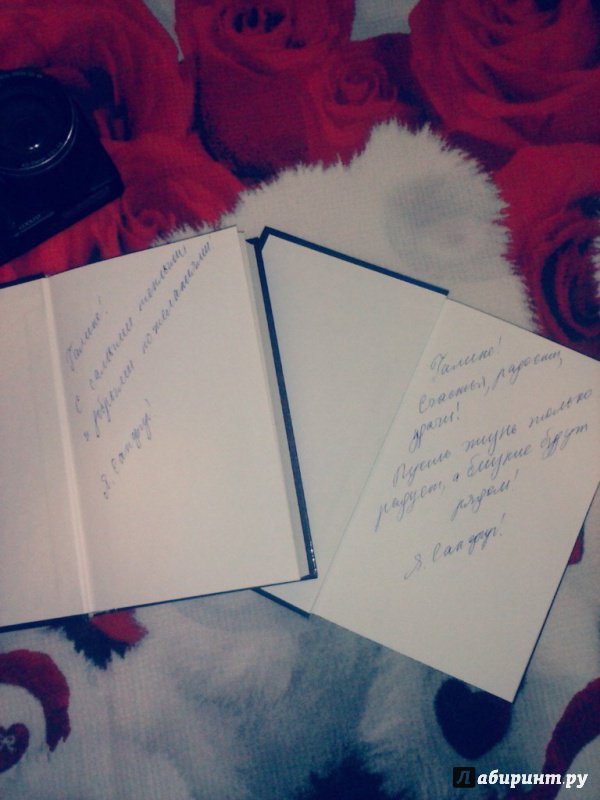 Галине!
С самыми теплыми
и добрыми пожеланиями
Я. Сандруг!
Галине!
Счастья, радости,
удачи!
Пусть жизнь только
радует, а близкие будут
рядом!
Я. Сандруг!
Лабиринт.ру